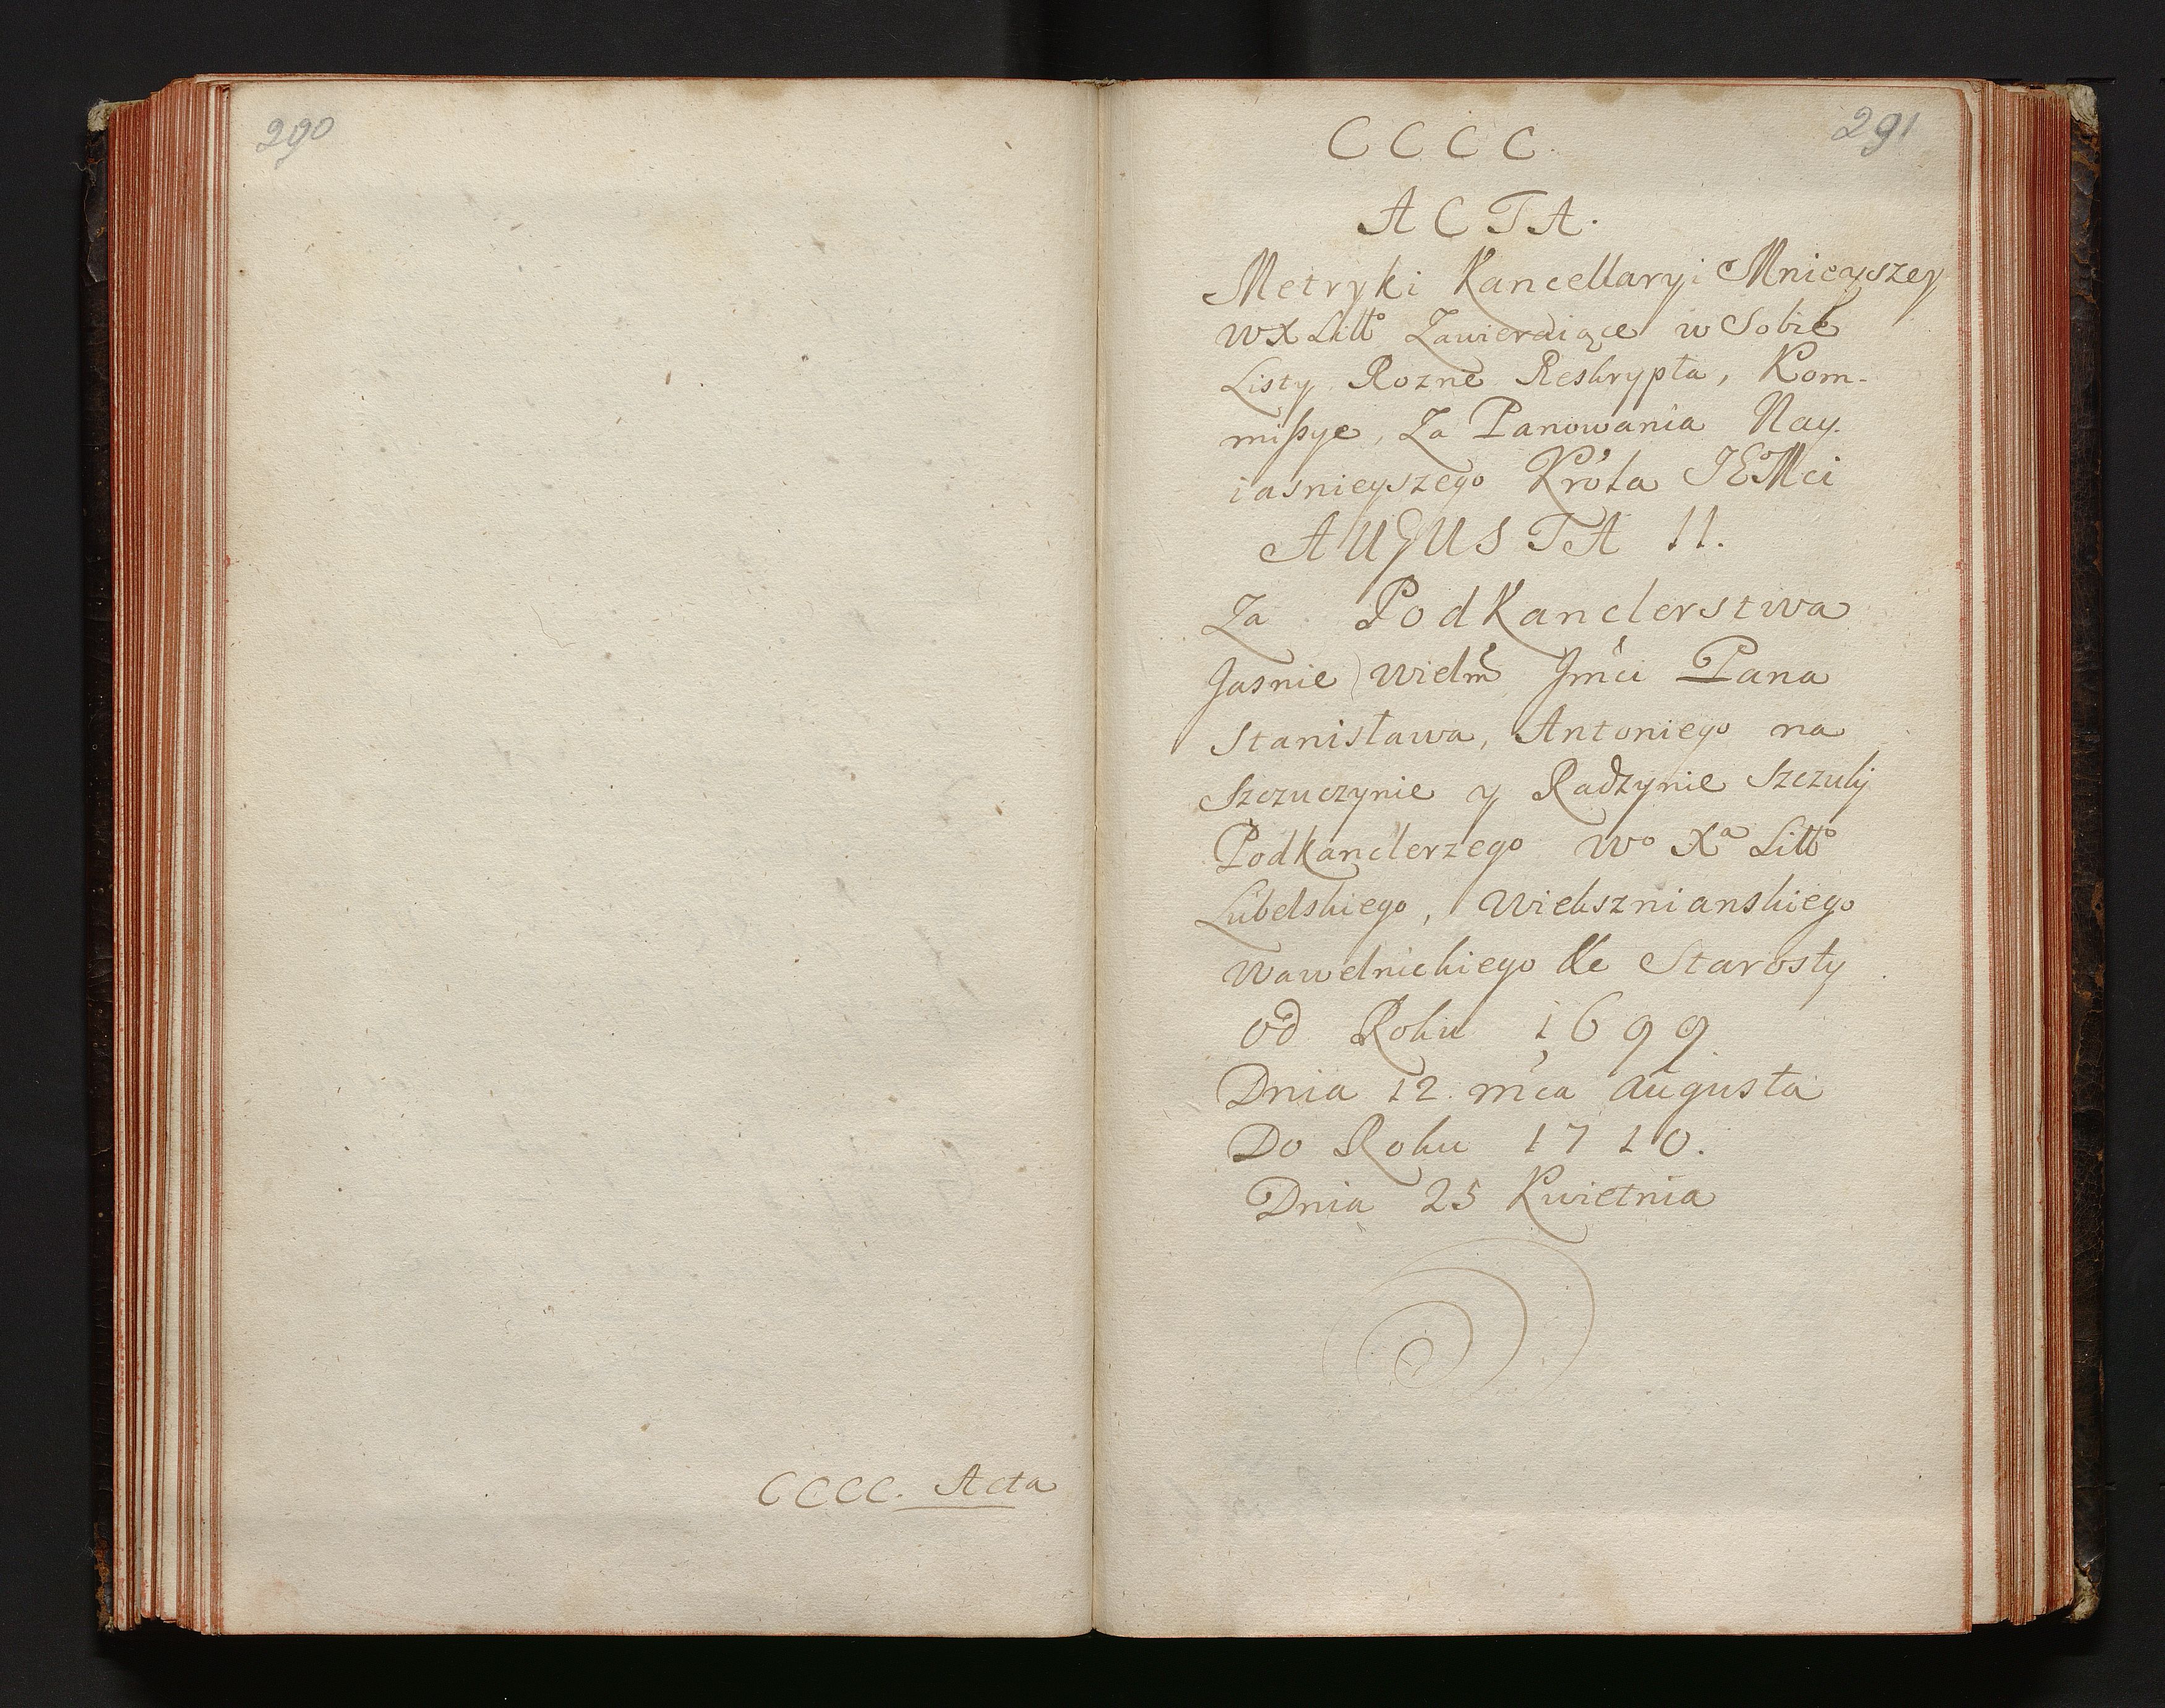 290
CCCC. Acta
291
CCCC.
ACTA.
Metryki Kancellaryi Mnieyszey
WX Litto Zawieraiące w Sobie
Listy Rozne Reskrypta, Kom-
mißye, Za Panowania Nay-
iasnieyszego Króla JEMci
AUGUSTA II.
Za PodKanclerstwa
Jasnie Wielm Jmći Pana
Stanisława, Antoniego na
Szczuczynie y Radzynie Szczuki
Podkanclerzego Wo Xa Litto
Lubelskiego, Wieksznianskiego
Wawelnickiego &c Starosty
od Roku 1699
Dnia 12. mća Augusta
Do Roku 1710.
Dnia 25 Kwietnia